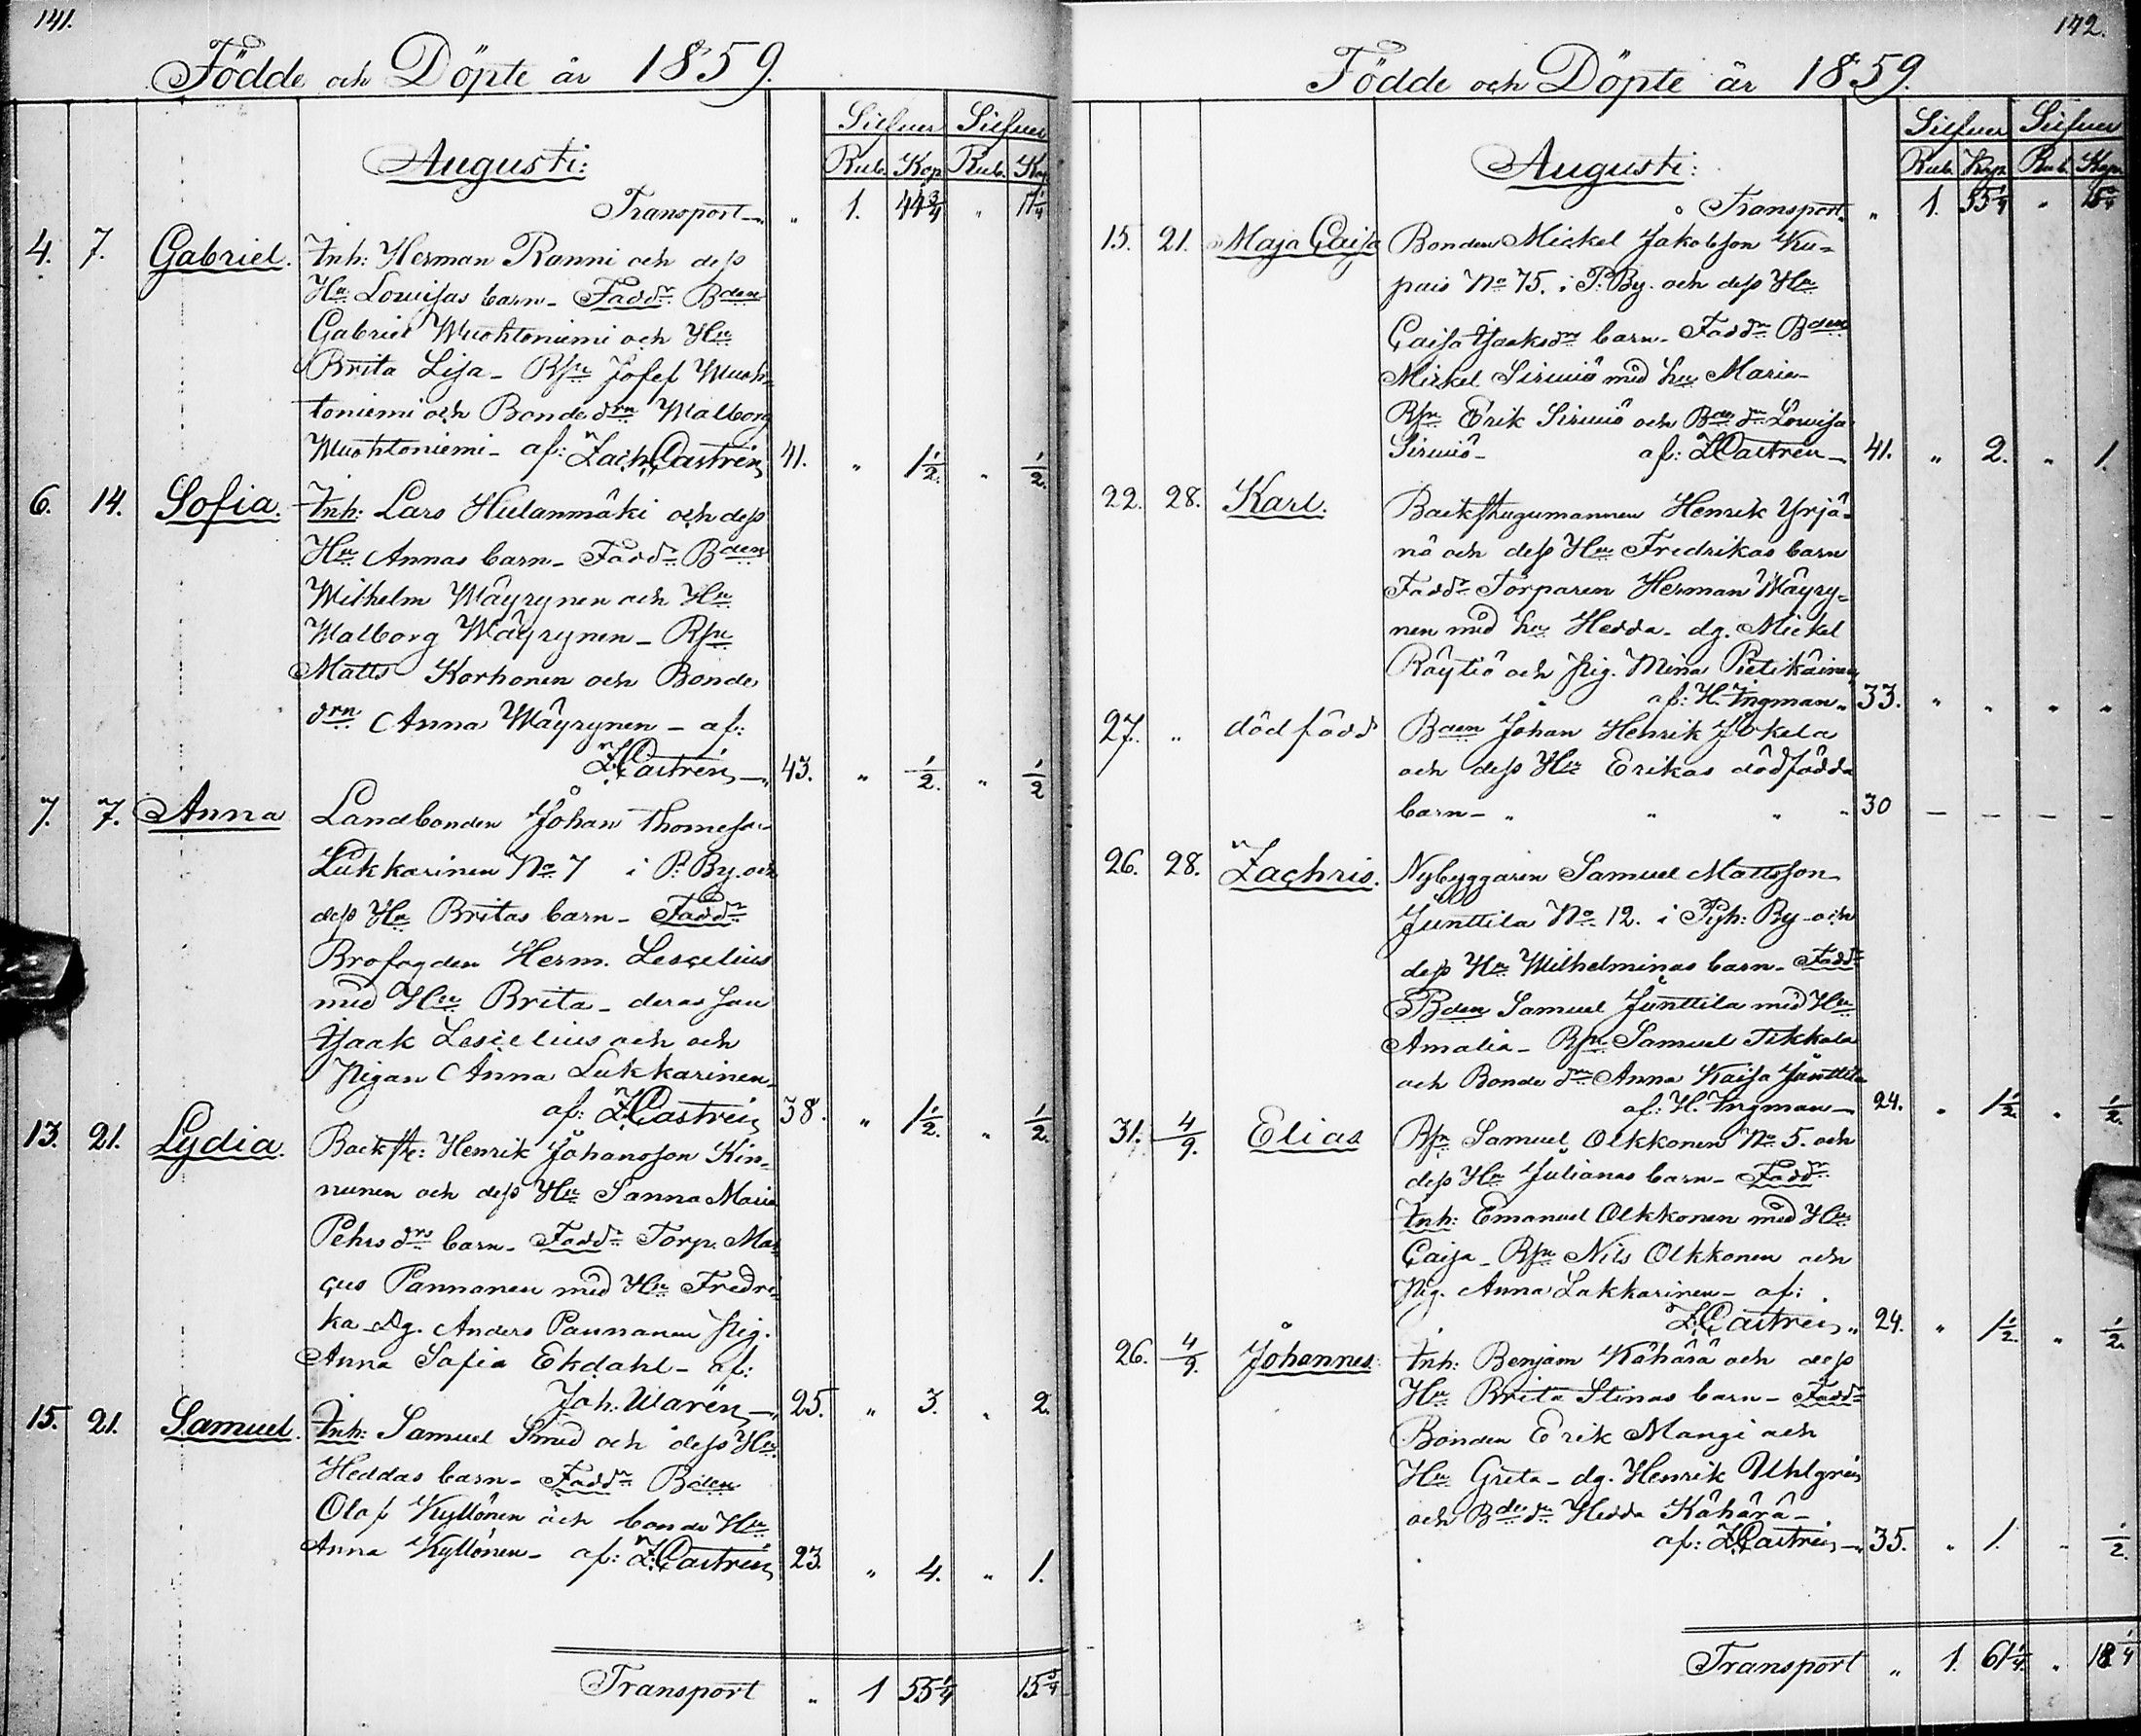 141.
Födde och Döpte år 1859.
Silfver Silfver
Augusti: Rub. Kop. Rub. Kop
Transport " 1. 44 3/4 " 11 1/4
4. 7. Gabriel. Inh: Herman Ranni och dess
Hu Lowisas barn - Faddr Bden
Gabriel Muohtoniemi och Hu
Brita Lisa - Bsn Josef Muoh-
toniemi och Bonde drn Walborg
Muohtoniemi - af: Zach. Castrén 41. " 1 1/2. " 1/2.
6. 14. Sofia. Inh: Lars Hulanmäki och dess
Hu Annas barn - Faddr Bden
Wilhelm Wäyrynen och Hu
Walborg Wäyrynen - Bsn
Matts Korhonen och Bonde
drn Anna Wäyrynen - af:
Z. Castrén 43. " 1/2. " 1/2
7. 7. Anna Landbonden Johan Thomesson
Lukkarinen No 7 i P. By. och
dess Hu Britas barn - Faddr
Brofogden Herm. Lescelius
med Hu Brita - deras son
Isaak Lescelius och och
Pigan Anna Lukkarinen
af: Z. Castrén 38. " 1 1/2. " 1/2.
13. 21. Lydia. Backst: Henrik Johansson Kin-
nunen och dess Hu Sanna Maria
Pehrs drs barn - Faddr Torp. Mar
cus Pannanen med Hu Fredri-
ka - Dg. Anders Pannanen Pig.
Anna Sofia Ekdahl - af:
Joh. Warén 25. " 3. " 2.
15. 21. Samuel. Inh: Samuel Smed och dess Hu
Heddas barn - Faddr Bden
Olof Kyllönen och bonde Hu
Anna Kyllönen - af: Z. Castrén 23. " 4. " 1.
Transport " 1 55 1/4 15 3/4
142.
Födde och Döpte år 1859.
Silfver Silfver
Augusti: Rub. Kop. Rub. Kop.
Transport " 1. 55 1/4 " 15 3/4
15. 21. Maja Caisa Bonden Mickel Jakobsson Ku-
pais No 75. i P. By. och dess Hu
Caisa Isaksdrs barn - Faddr Bden
Mickel Sirviö med hu Maria -
Bsn Erik Sirviö och Bde dr Lowisa
Sirviö - af: Z. Castrén 41. " 2. " 1.
22. 28. Karl. Backstugumannen Henrik Yrjä-
nä och dess Hu Fredrikas barn
Faddr Torparen Herman Wäyry-
nen med hu Hedda - dg. Mickel
Räytiö och Pig. Mina Pietikäinen
af: H. Ingman. 33. " " " "
27. " dödfödd Bden Johan Henrik Jokela
och dess Hu Erikas dödfödda
barn - " " " " 30 - - - -
26. 28. Zachris. Nybyggaren Samuel Mattsson
Junttila No 12. i Pyh: By - och
dess Hu Wilhelminas barn - Faddr
Bden Samuel Junttila med Hu
Amalia - Bsn Samuel Tikkala
och Bonde drn Anna Kaisa Junttila
af: H. Ingman 24. " 1 1/2. " 1/2.
31. 4/9. Elias Bsn Samuel Olkkonen No 5. och
dess Hu Julianas barn - Faddr
Inh: Emanuel Olkkonen med Hu
Caisa - Bsn Nils Olkkonen och
Pig. Anna Lakkarinen - af:
Z. Castrén 24. " 1 1/2. " 1/2.
26. 4/9. Johannes. Inh: Benjam Kähärä och dess
Hu Brita Stinas barn - Faddr
Bonden Erik Mangi och
Hu Greta - dg. Henrik Uhlgrén
och Bde dr Hedda Kähärä -
af: Z. Castrén 35. " 1. " 1/2.
Transport " 1. 61 1/4. " 18 1/4